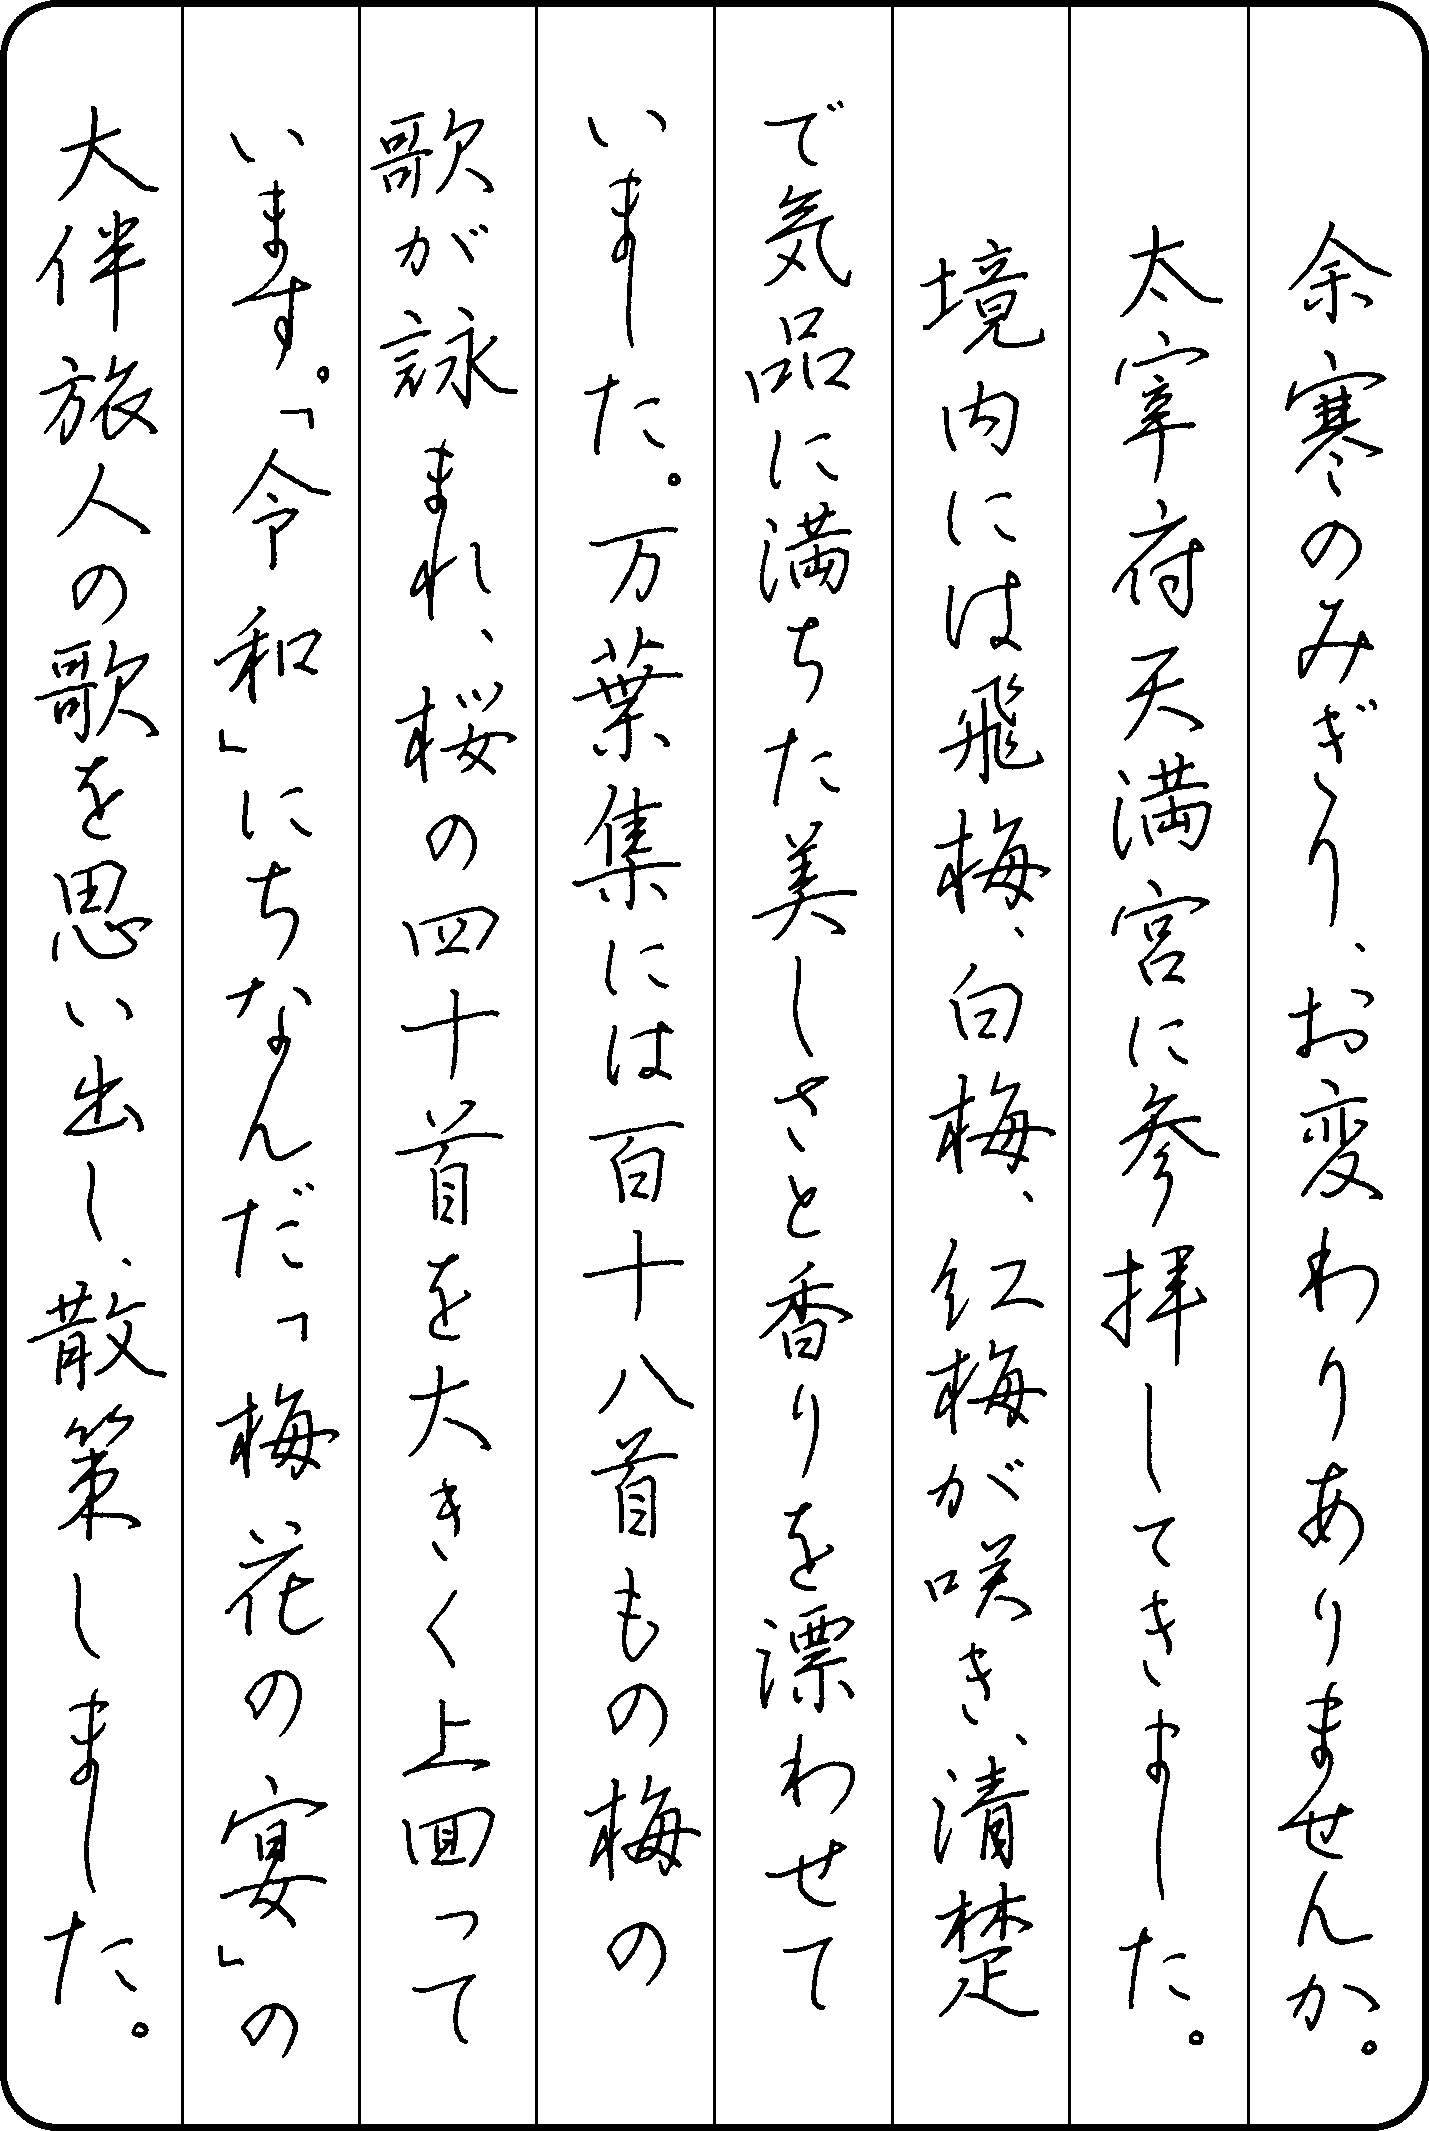 余寒のみぎり、お変わりありませんか。
太宰府天満宮に参拝してきました。
境内には飛梅、白梅、紅梅が咲き、清楚
で気品に満ちた美しさと香りを漂わせて
いました。万葉集には百十八首もの梅の
歌が詠まれ、桜の四十首を大きく上回って
います。「令和」にちなんだ「梅花の宴」の
大伴旅人の歌を思い出し、散策しました。